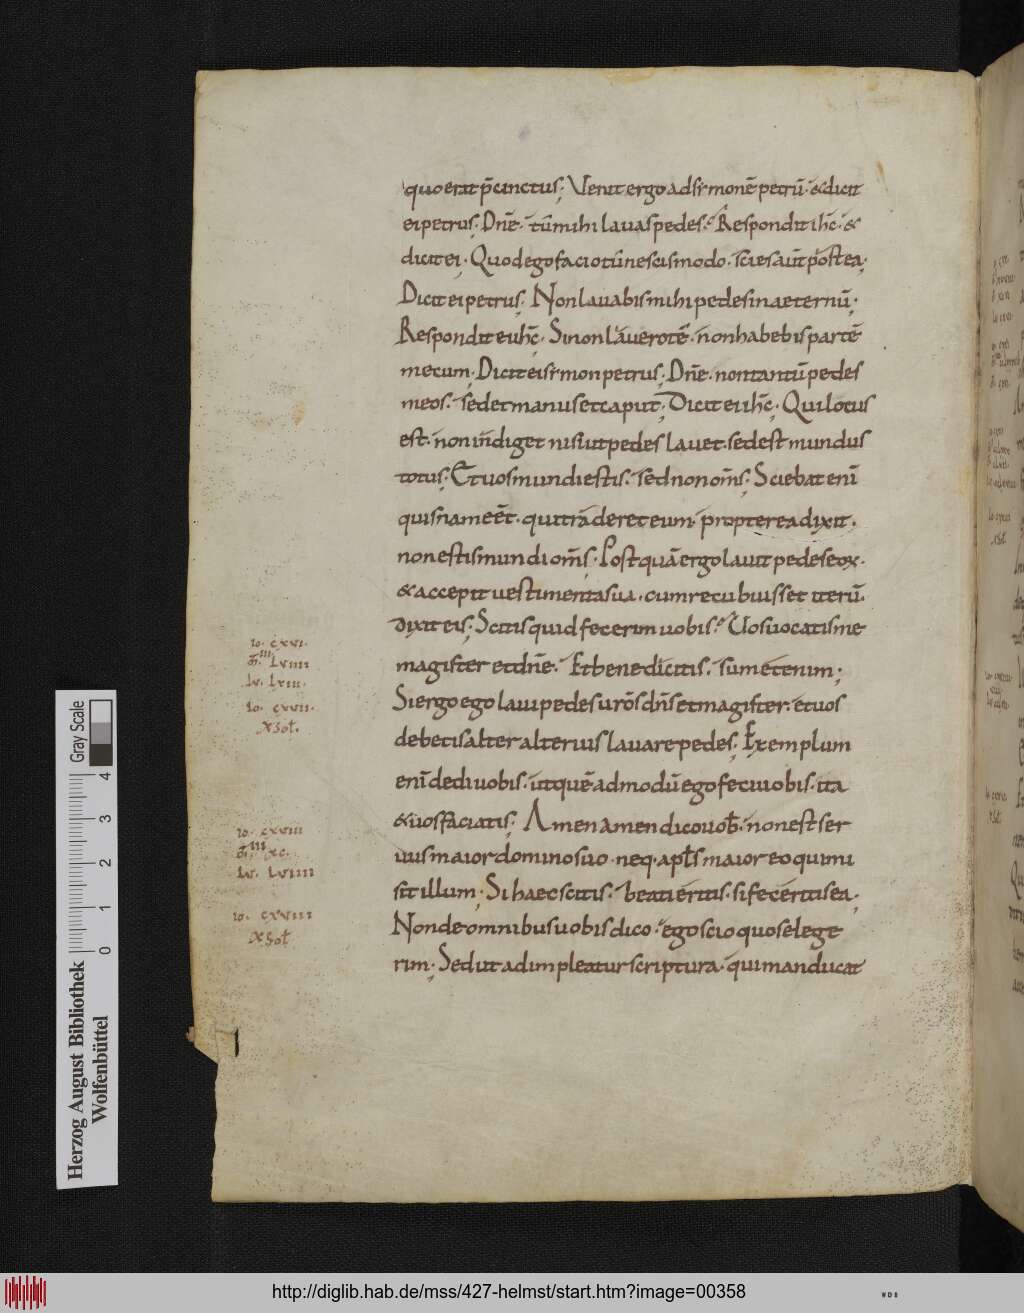 quo erat p̄cinctus; Venit ergo ad simonē petrū· & dicit
ei petrus· Dn̄e· tū mihi lauas pedes? Respondit ih̄c· &
dicit ei; Quod ego facio tū nescis modo· scies aūt postea;
Dicit ei petrus; Non lauabis mihi pedes in aeternū;
Respondit ei ih̄c; Si non lauero te· non habebis partē
mecum; Dicit ei simon petrus; Dn̄e· non tantū pedes
meos· sed et manus et caput; Dicit ei ih̄c; Qui lotus
est· non indiget nisi ut pedes lauet· sed est mundus
totus; Et uos mundi estis· sed non om̄s; Sciebat enī
quisnam eēt· qui traderet eum· propterea dixit·
non estis mundi om̄s; Postquā ergo lauit pedes eoꝝ·
& accepit uestimenta sua· cum recubuisset iterū·
dixit eis; Scitis quid fecerim uobis? Uos uocatis me
magister et dn̄e· Et bene dicitis· sum etenim;
Si ergo ego laui pedes ur̄os dn̄s et magister· et uos
debetis alter alterius lauare pedes; Exemplum
enī dedi uobis· ut quē admodū ego feci uobis· ita
& uos faciatis; Amen amen dico uob̄· non est ser
uus maior domino suo· neq· apl̄s maior eo qui mi
sit illum; Si haec scitis· beati eritis· si feceritis ea;
Non de omnibus uobis dico· ego scio quos elege
rim; Sed ut adimpleatur scriptura· qui manducat
io· cxvi·
m̄ lviiii
lu· lxiii·
io· cxvii·
x sol·
io· cxviii
m̄ xc·
lu· lviiii
io· cxviiii
x sol
Gray Scale
0 1 2 3 4
Herzog August Bibliothek
Wolfenbüttel
http://diglib.hab.de/mss/427-helmst/start.htm?image=00358